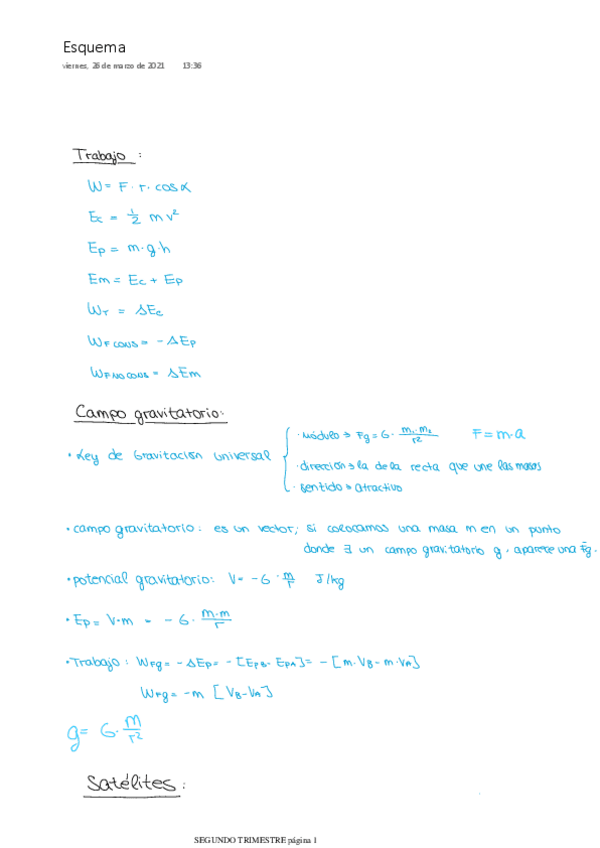 Esquema
viernes, 26 de marzo de 2021 13:36
Trabajo :
W = F · r · cos α
Ec = 1/2 m v²
Ep = m · g · h
Em = Ec + Ep
WT = ΔEc
WF CONS = - ΔEp
WF NO CONS = ΔEm
Campo gravitatorio:
· módulo → Fg = G · m₁·m₂/r² F = m · a
· Ley de Gravitación Universal
· dirección → la de la recta que une las masas
· sentido → atractivo
· campo gravitatorio: es un vector; si colocamos una masa m en un punto
donde ∃ un campo gravitatorio g · aparece una Fg.
· potencial gravitatorio: V = - G · m/r J/kg
· Ep = V·m = - G · m·m/r
· Trabajo : WFg = - ΔEp = - [EpB - EpA] = - [m·VB - m·VA]
WFg = -m [VB - VA]
g = G · m/r²
Satélites :
SEGUNDO TRIMESTRE página 1